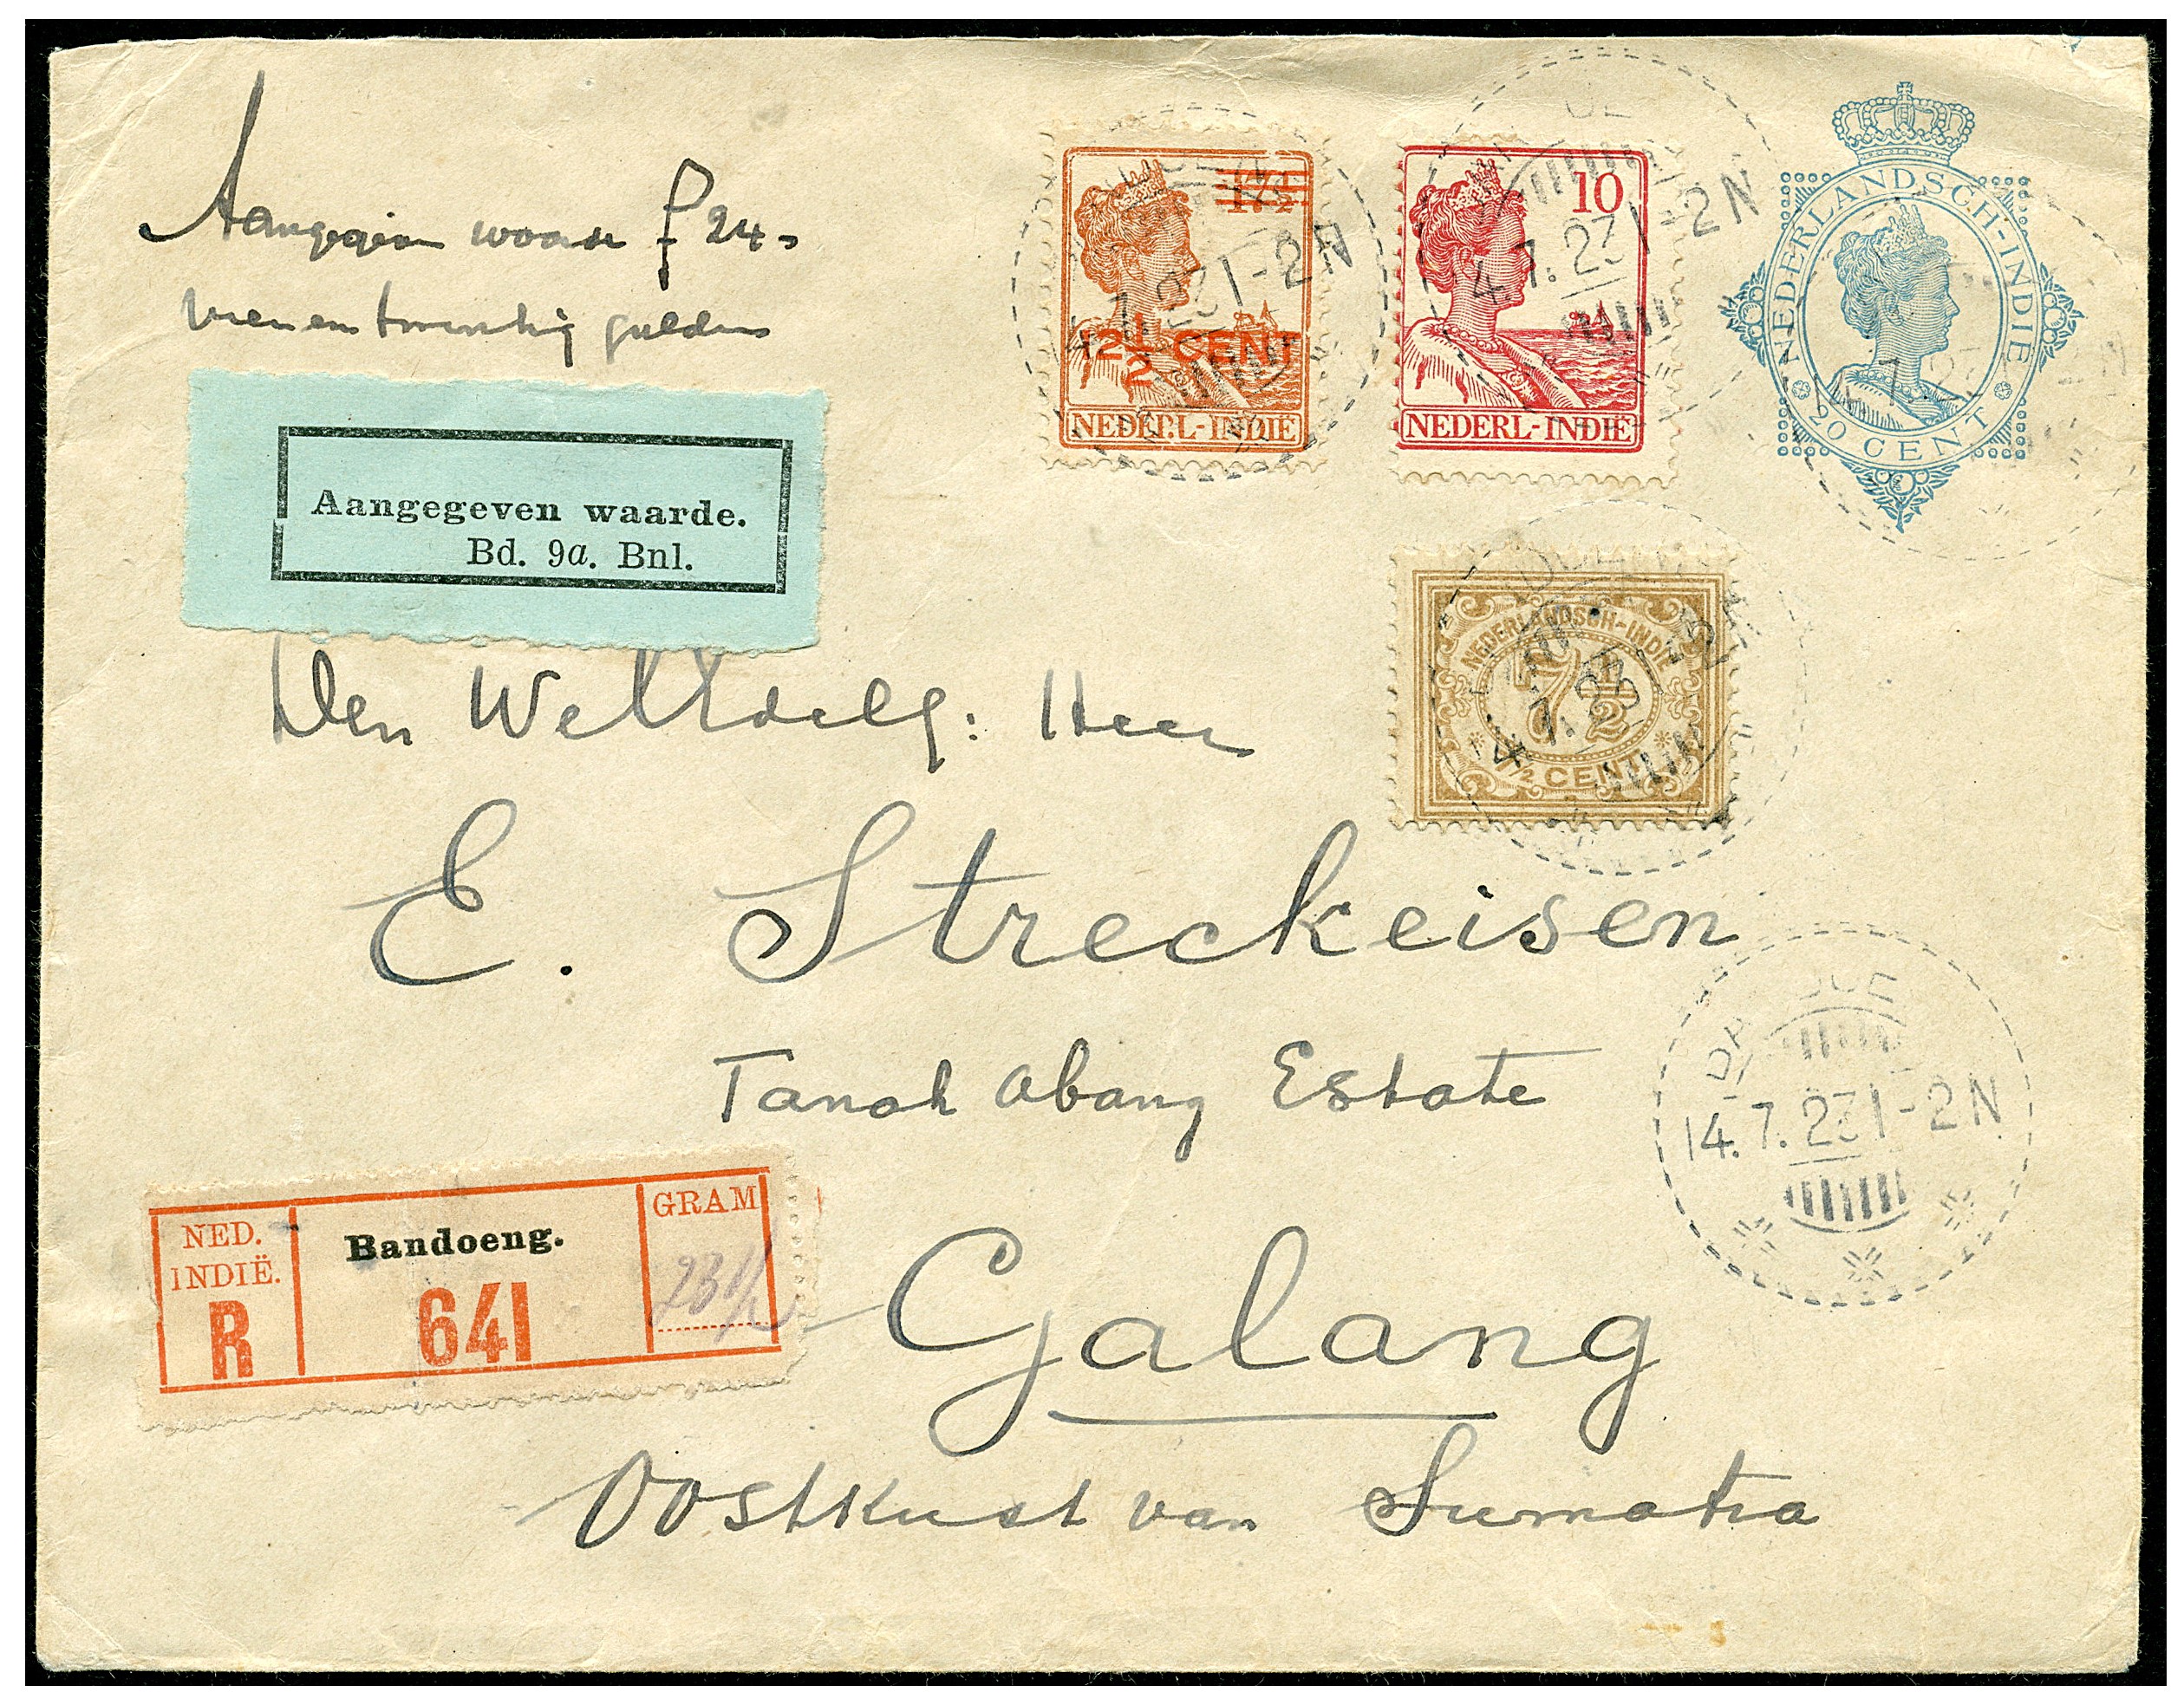 Aangegeven waarde f 24,-
vierentwintig gulden
Aangegeven waarde.
Bd. 9a. Bnl.
17½
12½ CENT
NEDERL-INDIE
10
NEDERL-INDIE
NEDERLANDSCH-INDIE
20 CENT
NEDERLANDSCH-INDIE
7½
7½ CENT
14.7.23 1-2N
14.7.23 1-2N
14.7.23
Den WelEdelg: Heer
E. Streckeisen
Tanah Abang Estate
14.7.23 1-2N
NED. INDIË.
R
Bandoeng.
641
GRAM
Galang
Oostkust van Sumatra